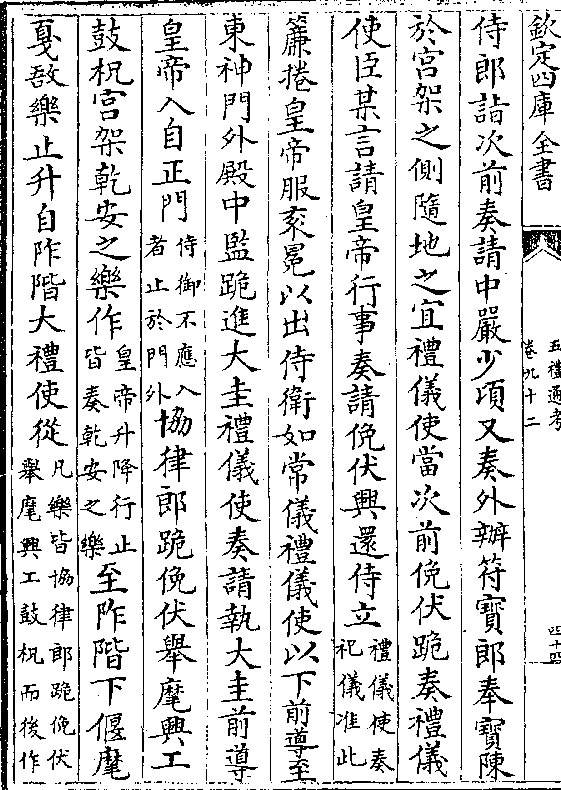 欽定四庫全書
五禮通考
卷九十二
四十四
侍郎詣次前奏請中嚴少頃又奏外辦符寶郎奉寶陳
於宮架之側隨地之宜禮儀使當次前俛伏跪奏禮儀
使臣某言請皇帝行事奏請俛伏興還侍立禮儀使奏祀儀准此
簾捲皇帝服衮冕以出侍衛如常儀禮儀使以下前導至
東神門外殿中監跪進大圭禮儀使奏請執大圭前導
皇帝入自正門侍御不應入者止於門外協律郎跪俛伏舉麾興工
鼓柷宮架乾安之樂作皇帝升降行止皆奏乾安之樂至阼階下偃麾
戛敔樂止升自阼階大禮使從凡樂皆協律郎跪俛伏舉麾興工鼓柷而後作